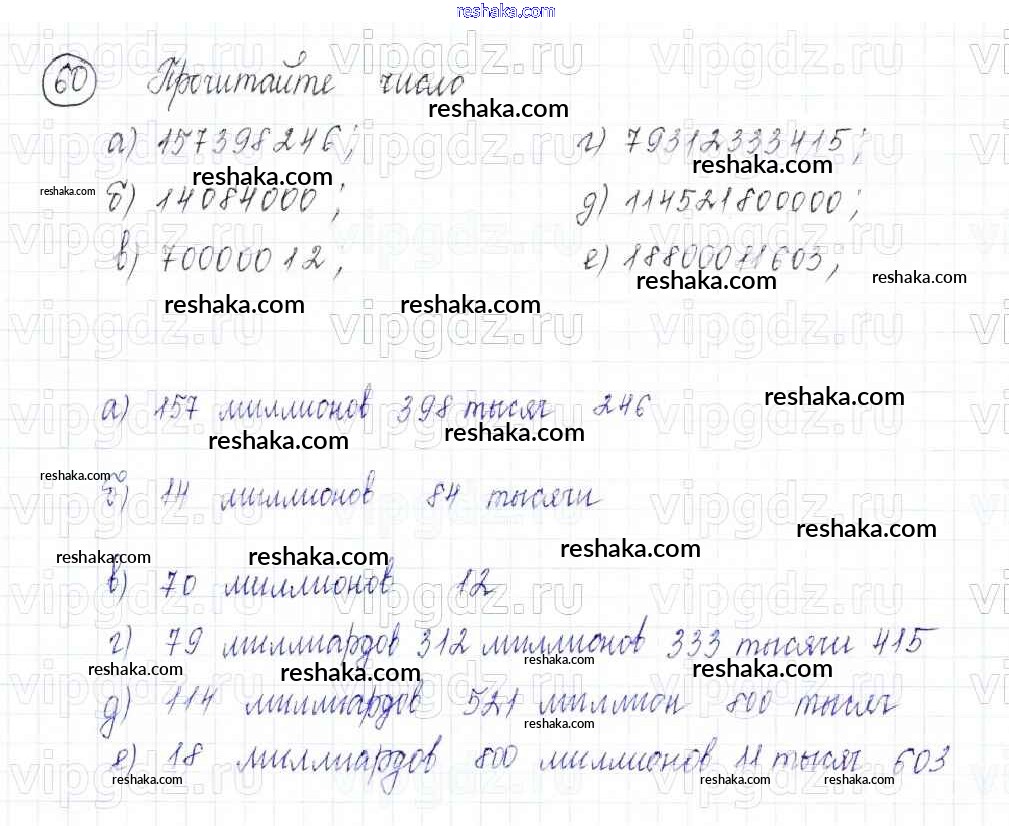 reshaka.com
60 Прочитайте число
reshaka.com
а) 157398246; г) 79312333415;
reshaka.com reshaka.com
reshaka.com б) 14084000; д) 114521800000;
в) 70000012; е) 18800011603;
reshaka.com reshaka.com reshaka.com reshaka.com
vipgdz.ru vipgdz.ru vipgdz.ru
а) 157 миллионов 398 тысяч 246 reshaka.com
reshaka.com reshaka.com
reshaka.com
б) 14 миллионов 84 тысячи
reshaka.com reshaka.com reshaka.com reshaka.com
в) 70 миллионов 12
г) 79 миллиардов 312 миллионов 333 тысячи 415
reshaka.com reshaka.com reshaka.com reshaka.com
д) 114 миллиардов 521 миллион 800 тысяч
reshaka.com
е) 18 миллиардов 800 миллионов 11 тысяч 603
reshaka.com reshaka.com reshaka.com reshaka.com